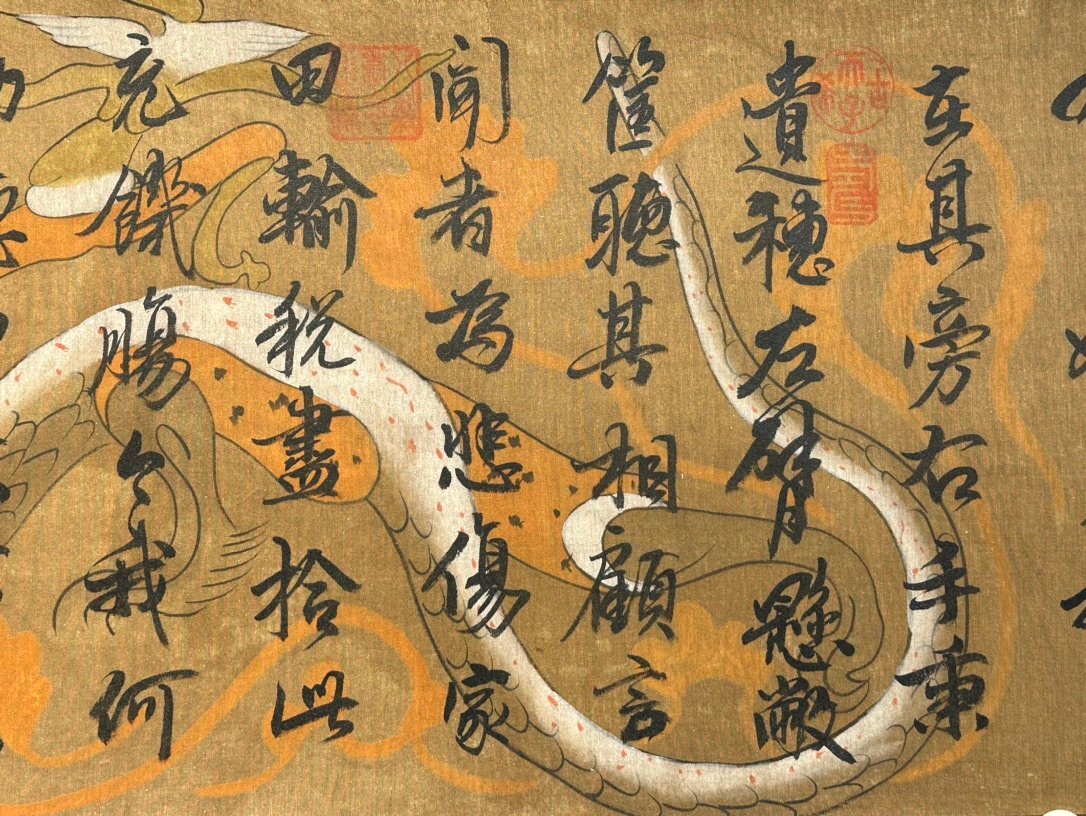 在其旁右手秉
遺穗左臂懸敝
筐聽其相顧言
聞者為悲傷家
田輸稅盡拾此
充飢腸今我何